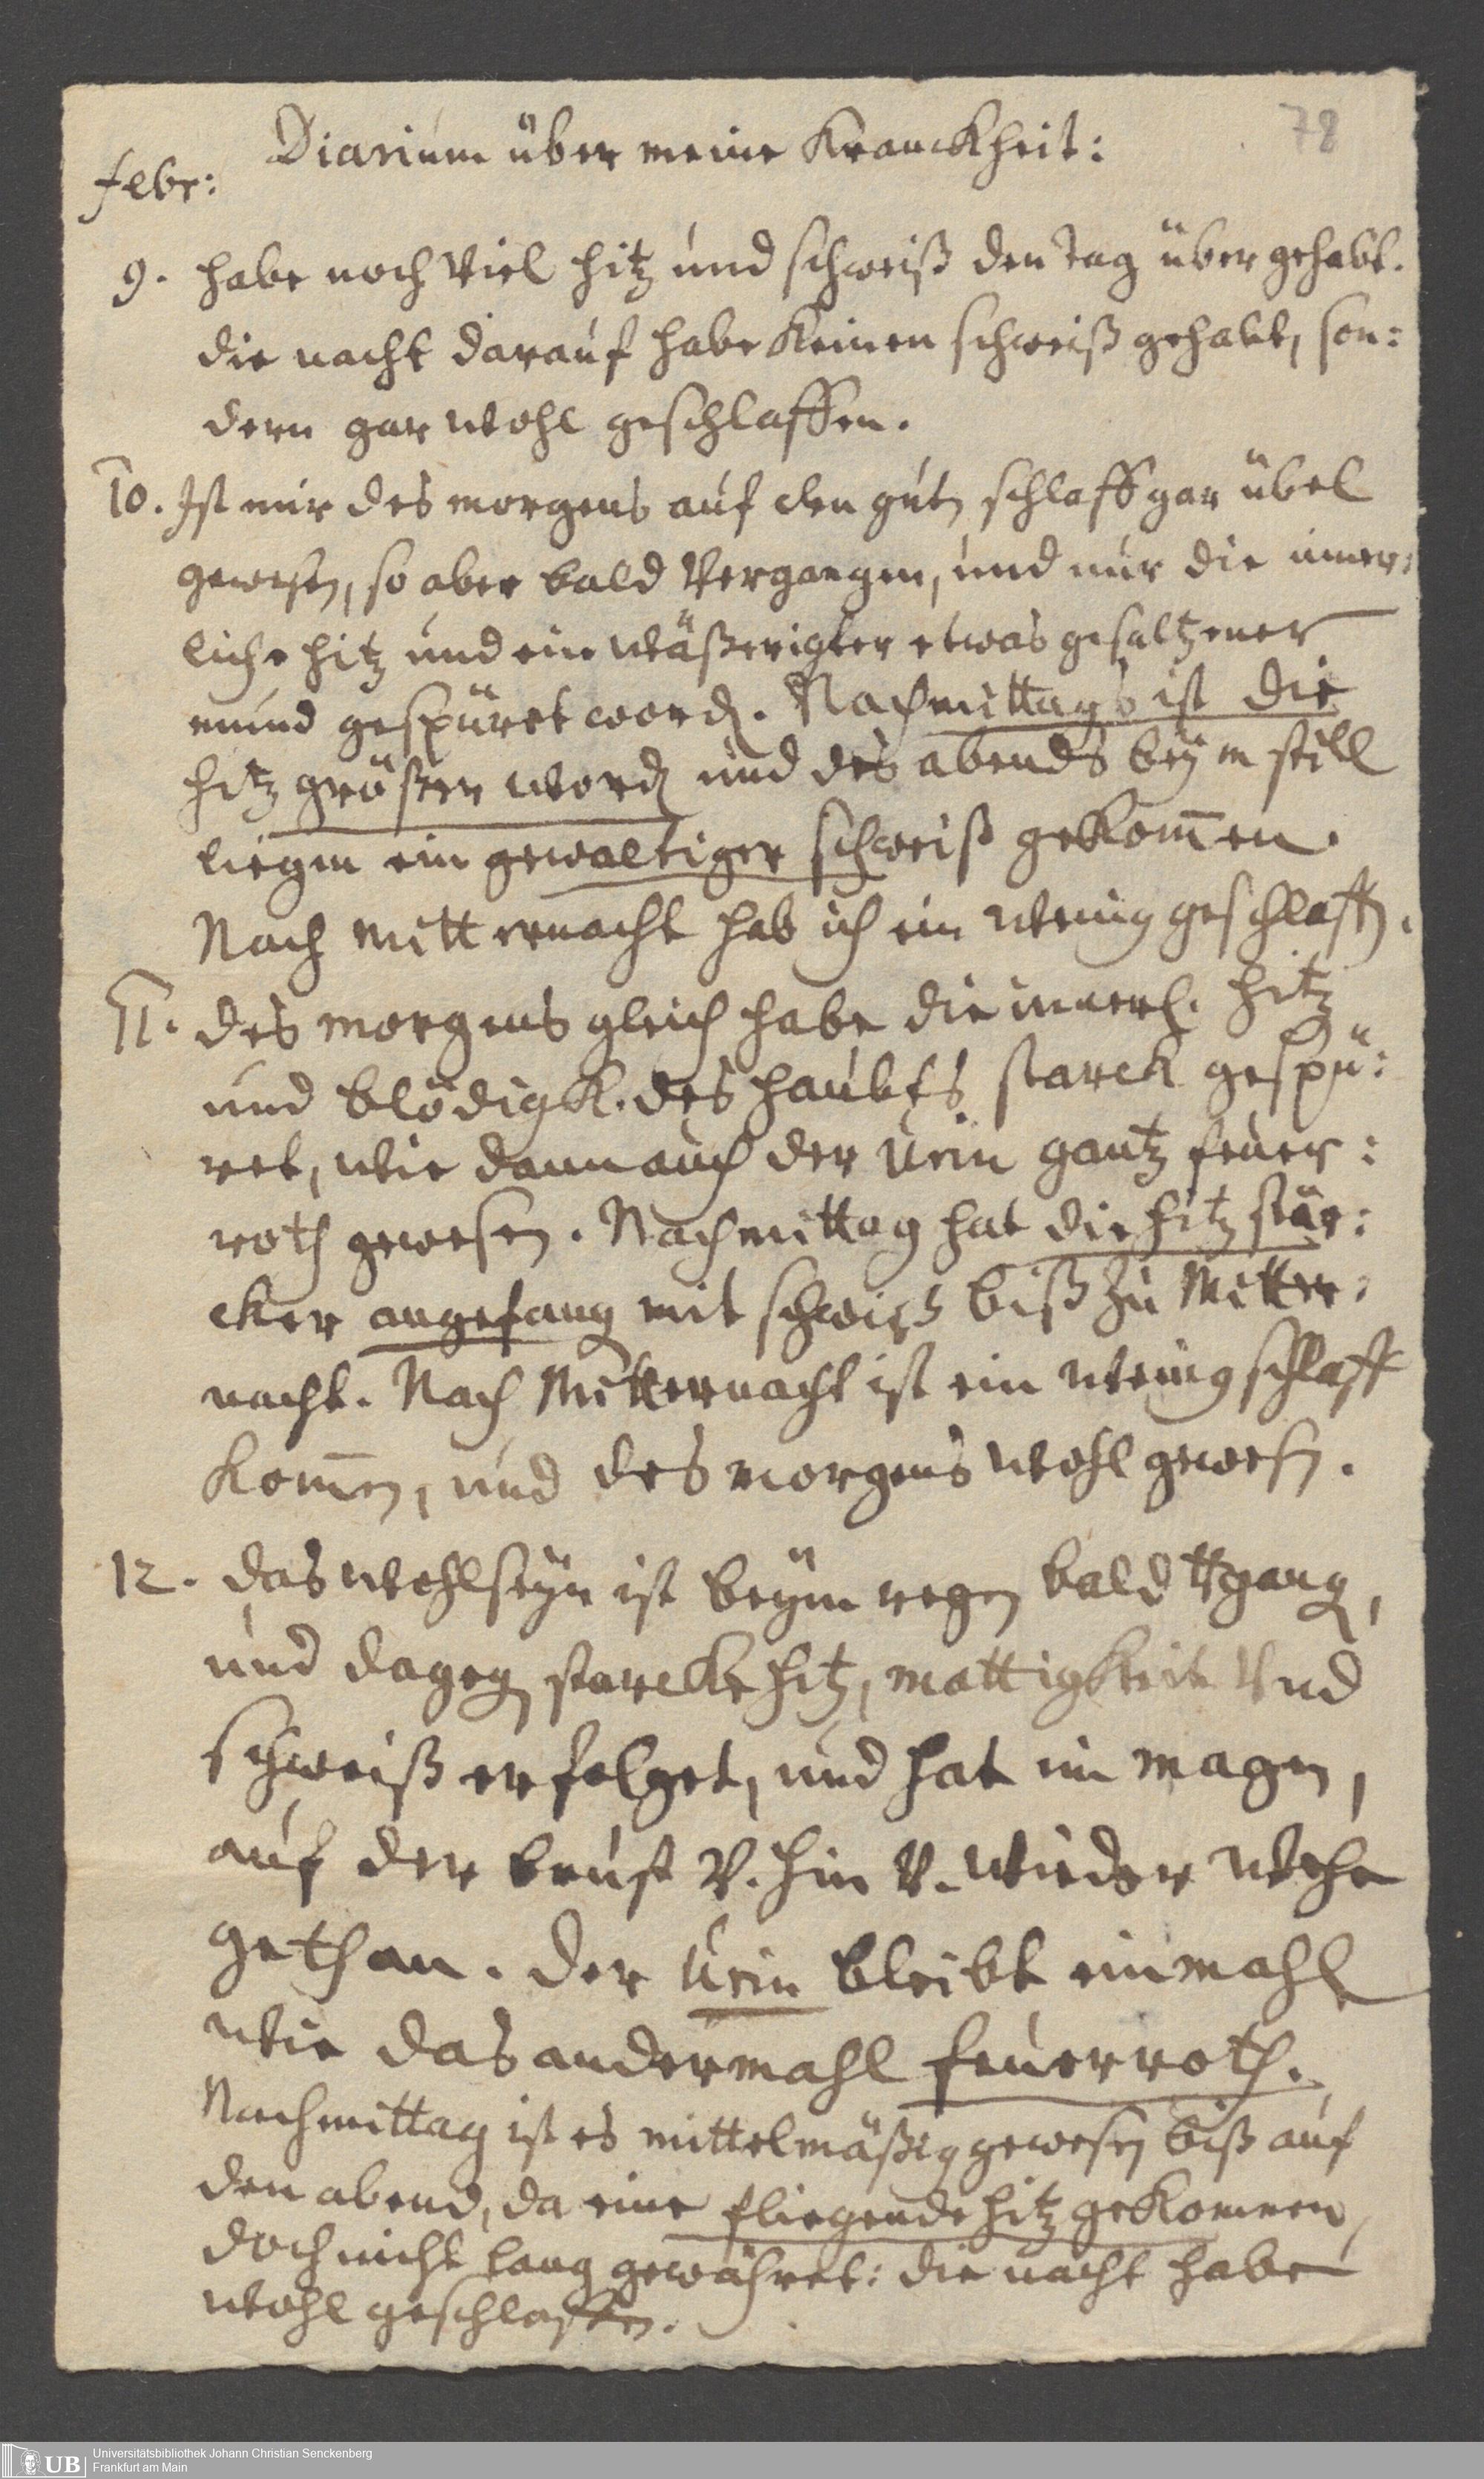 78
Diarium über meine Kranckheit:
Febr:
9. habe noch viel hitz und schweiß den tag über gehabt.
die nacht darauf habe keinen schweiß gehabt, son:
dern gar wohl geschlaffen.
10. Ist mir des morgens auf den gutn schlaff gar übel
gewesen, so aber bald vergangen, und nur die inner:
liche hitz und ein wäßerigter etwas gesaltzener
mund gespüret word. Nachmittags ist die
hitz größer word und des abends beym still
liegen ein gewaltiger schweiß gekom̅en.
Nach mitternacht hab ich ein wenig geschlaffn.
11. des morgens gleich habe die innerl. hitz
und blödigk. des haubts starck gespü:
ret, wie dann auch der Urin gantz feuer:
roth gewesen. Nachmittag hat die hitz stär:
cker angefang mit schweiß biß zu Mitter:
nacht. Nach Mitternacht ist ein wenig schlaff
kom̅en, und des morgens wohl gewesn.
12. das wohlseyn ist beym regen bald vgang,
und dagegn starcke hitz, mattigkeit und
schweiß erfolget, und hat im magen,
auf der brust v. hin v. wieder wehe
gethan. der Urin bleibt einmahl
wie das andermahl feuerroth.
Nachmittag ist es mittelmäßig gewesen biß auf
den abend, da eine fliegende hitz gekommen,
doch nicht lang gewähret: die nacht habe
wohl geschlaffen.
UB
Universitätsbibliothek Johann Christian Senckenberg
Frankfurt am Main